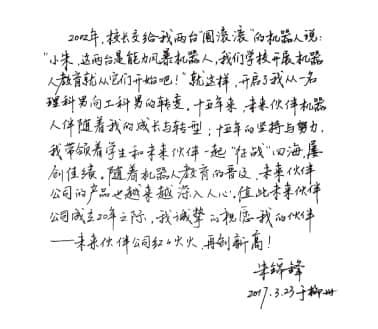 2002年，校长交给我两台“圆滚滚”的机器人说：
“小朱，这两台是能力风暴机器人，我们学校开展机器
人教育就从它们开始吧！”就这样，开启了我从一名
理科男向工科男的转变。十五年来，未来伙伴机器
人伴随着我的成长与转型；十五年的坚持与努力，
我带领着学生和未来伙伴一起“征战”四海，屡
创佳绩。随着机器人教育的普及，未来伙伴
公司的产品也越来越深入人心。值此未来伙伴
公司成立20年之际，我诚挚的祝愿我的伙伴
——未来伙伴公司红红火火，再创新高！
朱锦锋
2017.3.23于柳州